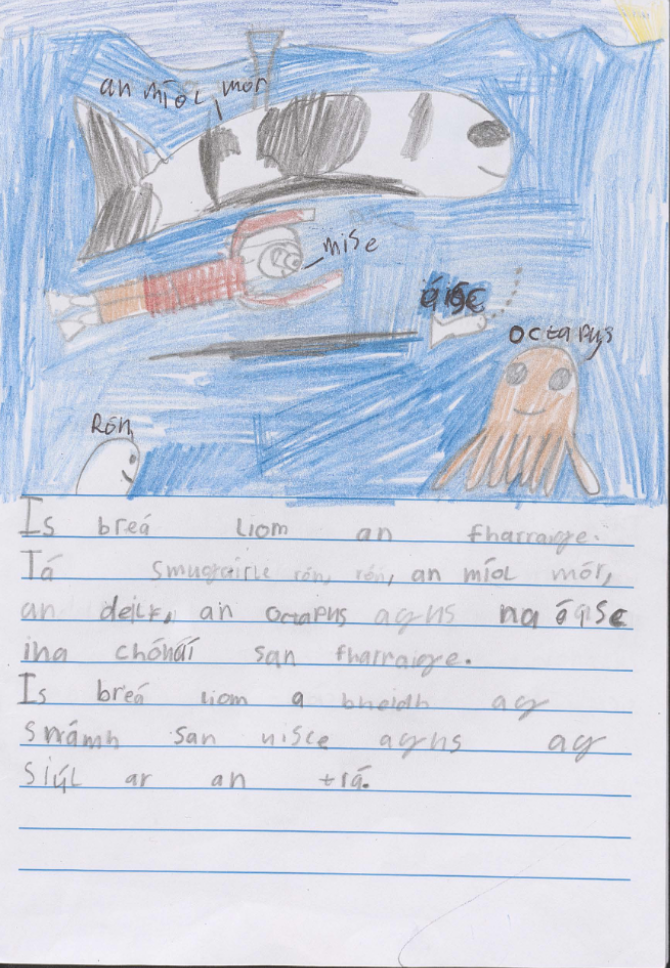 an míol mór
mise
éisc
octapus
Rón
Is breá liom an fharraige.
Tá smugairle róin, rón, an míol mór,
an deilf, an octapus agus na éisc
ina chónaí san fharraige.
Is breá liom a bheidh ag
snámh san uisce agus ag
siúl ar an trá.